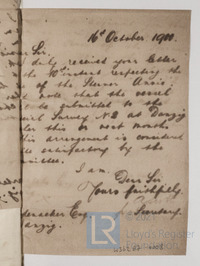 16th October 1900.
Sir,
duly received your letter
the 10th instant respecting the
of the Steamer
note that the vessel
to be submitted to the
Survey No 2 at Danzig
this or next month,
this arrangement is considered
satisfactory by the
I am,
Dear Sir
Yours faithfully
Secretary.
Esq
Danzig.
LR
Lloyd's Register
Foundation